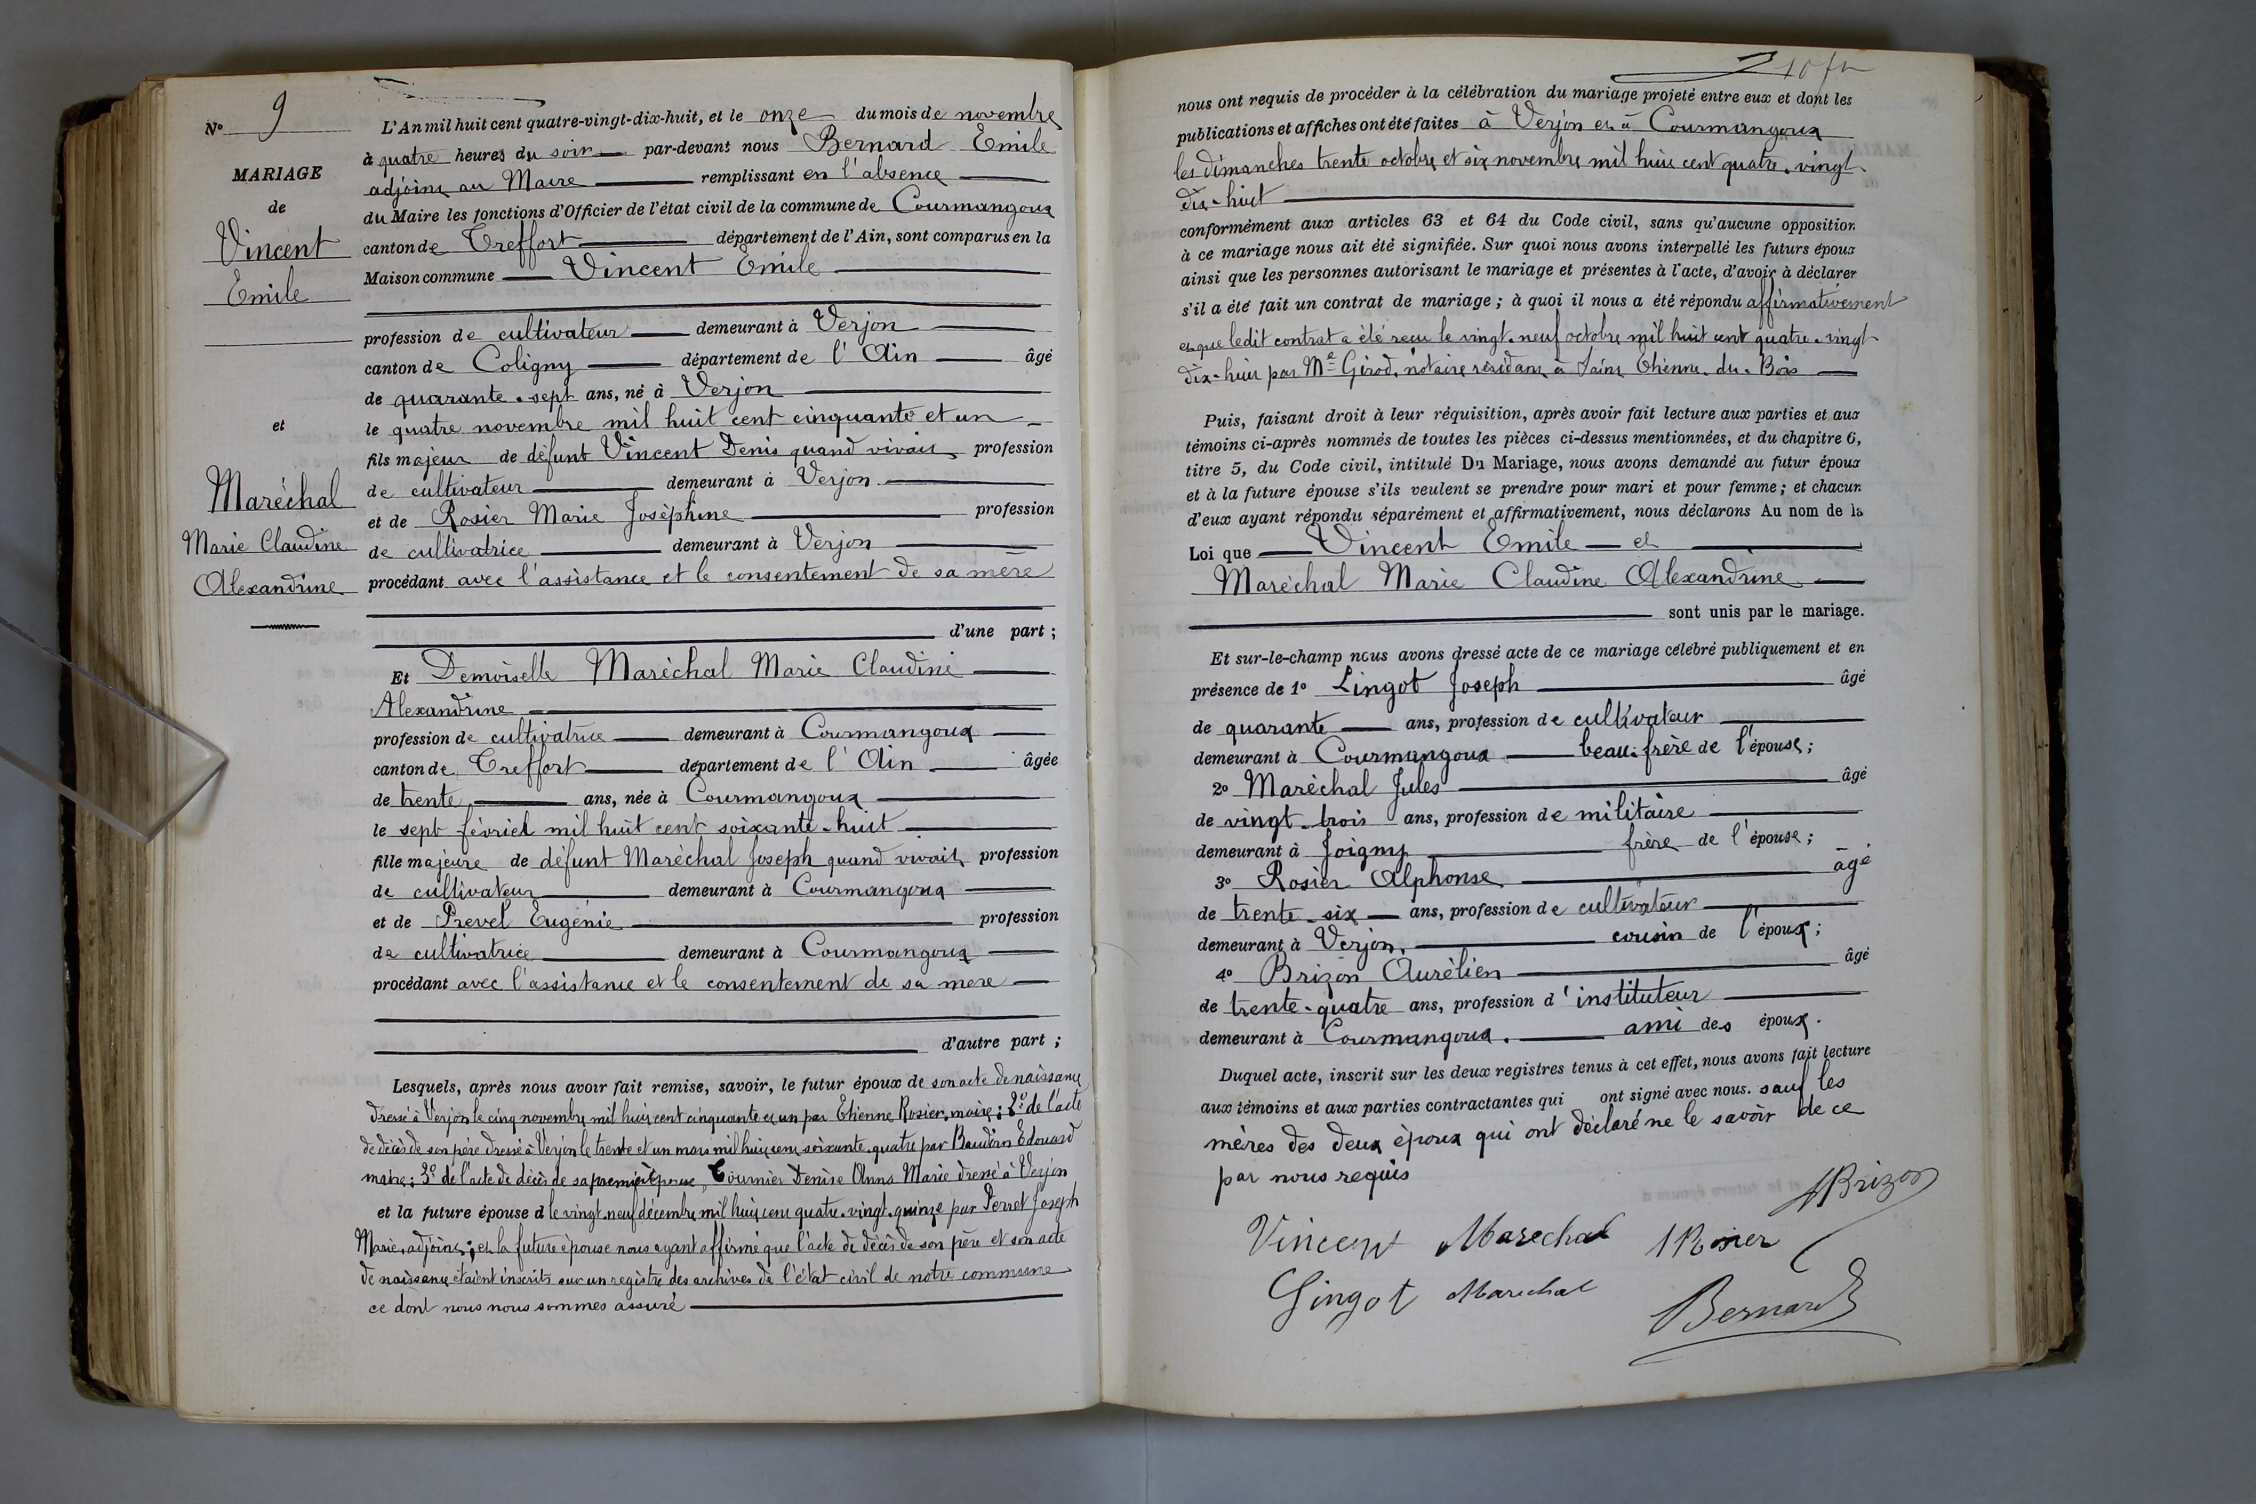 N° 9
MARIAGE
de
Vincent
Emile
et
Maréchal
Marie Claudine
Alexandrine
L'An mil huit cent quatre-vingt-dix-huit, et le onze du mois de novembre
à quatre heures du soir par-devant nous Bernard Emile
adjoint au Maire remplissant en l'absence
du Maire les fonctions d'Officier de l'état civil de la commune de Courmangoux
canton de Treffort département de l'Ain, sont comparus en la
Maison commune Vincent Emile
profession de cultivateur demeurant à Verjon
canton de Coligny département de l'Ain âgé
de quarante-sept ans, né à Verjon
le quatre novembre mil huit cent cinquante et un
fils majeur de défunt Vincent Denis quand vivait profession
de cultivateur demeurant à Verjon
et de Rosier Marie Joséphine profession
de cultivatrice demeurant à Verjon
procédant avec l'assistance et le consentement de sa mère
d'une part ;
Et Demoiselle Maréchal Marie Claudine
Alexandrine
profession de cultivatrice demeurant à Courmangoux
canton de Treffort département de l'Ain âgée
de trente ans, née à Courmangoux
le sept février mil huit cent soixante-huit
fille majeure de défunt Maréchal Joseph quand vivait profession
de cultivateur demeurant à Courmangoux
et de Prevel Eugénie profession
de cultivatrice demeurant à Courmangoux
procédant avec l'assistance et le consentement de sa mère
d'autre part ;
Lesquels, après nous avoir fait remise, savoir, le futur époux de son acte de naissance
dressé à Verjon le cinq novembre mil huit cent cinquante et un par Etienne Rosier, maire ; 2° de l'acte
de décès de son père dressé à Verjon le trente et un mars mil huit cent soixante-quatre par Baudin Edouard
maire ; 3° de l'acte de décès de sa première épouse, Tournier Denise Anna Marie dressé à Verjon
et la future épouse d le vingt-neuf décembre mil huit cent quatre-vingt-quinze par Perret Joseph
Marie, adjoint ; et la future épouse nous ayant affirmé que l'acte de décès de son père et son acte
de naissance étaient inscrits sur un registre des archives de l'état civil de notre commune
ce dont nous nous sommes assuré
10 fr
nous ont requis de procéder à la célébration du mariage projeté entre eux et dont les
publications et affiches ont été faites à Verjon et à Courmangoux
les dimanches trente octobre et six novembre mil huit cent quatre-vingt-
dix-huit
conformément aux articles 63 et 64 du Code civil, sans qu'aucune opposition
à ce mariage nous ait été signifiée. Sur quoi nous avons interpellé les futurs époux
ainsi que les personnes autorisant le mariage et présentes à l'acte, d'avoir à déclarer
s'il a été fait un contrat de mariage ; à quoi il nous a été répondu affirmativement
et que ledit contrat a été reçu le vingt-neuf octobre mil huit cent quatre-vingt
dix-huit par Me Girod, notaire résidant à Saint Etienne-du-Bois
Puis, faisant droit à leur réquisition, après avoir fait lecture aux parties et aux
témoins ci-après nommés de toutes les pièces ci-dessus mentionnées, et du chapitre 6,
titre 5, du Code civil, intitulé Du Mariage, nous avons demandé au futur époux
et à la future épouse s'ils veulent se prendre pour mari et pour femme ; et chacun
d'eux ayant répondu séparément et affirmativement, nous déclarons Au nom de la
Loi que Vincent Emile et
Maréchal Marie Claudine Alexandrine
sont unis par le mariage.
Et sur-le-champ nous avons dressé acte de ce mariage célébré publiquement et en
présence de 1° Lingot Joseph âgé
de quarante ans, profession de cultivateur
demeurant à Courmangoux beau-frère de l'épouse ;
2° Maréchal Jules âgé
de vingt-trois ans, profession de militaire
demeurant à Joigny frère de l'épouse ;
3° Rosier Alphonse âgé
de trente-six ans, profession de cultivateur
demeurant à Verjon, cousin de l'époux ;
4° Brizon Aurélien âgé
de trente-quatre ans, profession d'instituteur
demeurant à Courmangoux. ami des époux.
Duquel acte, inscrit sur les deux registres tenus à cet effet, nous avons fait lecture
aux témoins et aux parties contractantes qui ont signé avec nous. sauf les
mères des deux époux qui ont déclaré ne le savoir de ce
par nous requis
ABrizon
Vincent Marechal ARosier
Lingot Marechal
Bernard